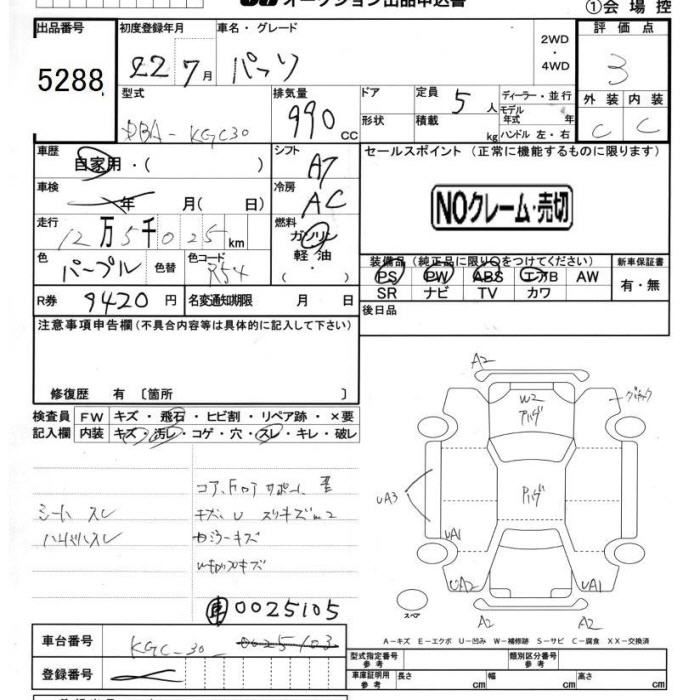 オークション出品申込書
①会場控
出品番号 初度登録年月 車名・グレード 評価点
5288 22 7月 パッソ 2WD・4WD 3
型式 排気量 ドア 定員 5人 ディーラー・並行 外装 内装
DBA-KGC30 990 CC 形状 積載 kg モデル年式 年 ハンドル 左・右 C C
車歴 シフト セールスポイント (正常に機能するものに限ります)
自家用・( ) AT
車検 冷房
年 月( 日) AC
NOクレーム・売切
走行 燃料
12万5千025km ガソリン
色 色替 色コード 軽油
パープル R54 ・( )
装備品 (純正品に限り○をつけてください) 新車保証書
PS PW ABS エアB AW 有・無
SR ナビ TV カワ
R券 9420円 名変通知期限 月 日 後日品
注意事項申告欄(不具合内容等は具体的に記入して下さい)
修復歴 有〔箇所 〕
検査員 FW キズ・飛石・ヒビ割・リペア跡・×要
記入欄 内装 キズ・汚レ・コゲ・穴・スレ・キレ・破レ
シート スレ
コア
キズ、U スリキズ
ミラーキズ
A2
W2
アハゲ
UA3
アハゲ
UA1
UA2
UA1
A2 A2
スペア
車 0025105
A-キズ E-エクボ U-凹み W-補修跡 S-サビ C-腐食 XX-交換済
車台番号 KGC-30 0025103
型式指定番号 参考 類別区分番号 参考
登録番号
車庫証明用 参考 長さ cm 幅 cm 高さ cm